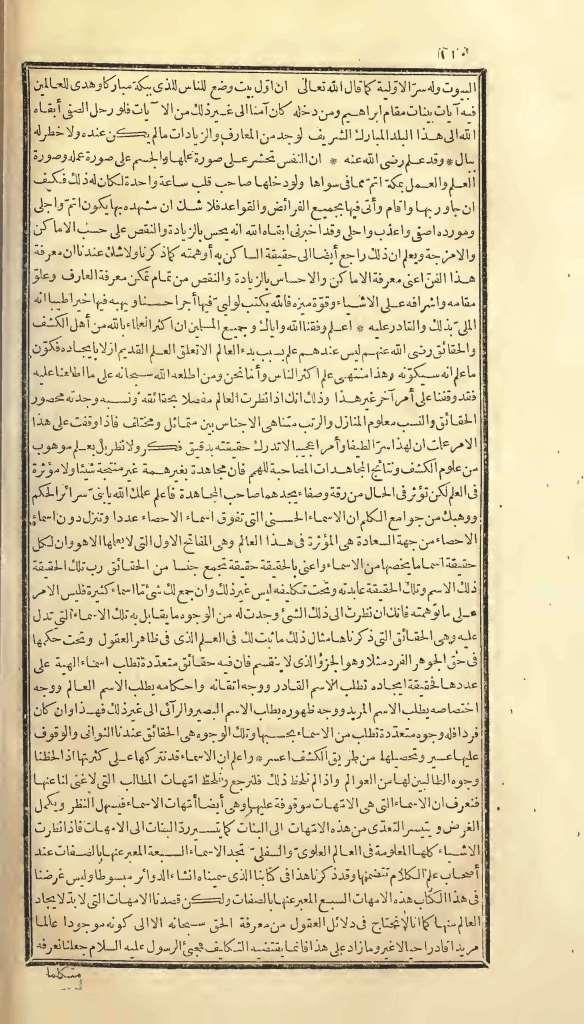 ٢١٠
البيوت وله سر الاولية كما قال الله تعالى ان اول بيت وضع للناس للذى ببكة مباركا وهدى للعالمين
فيه آيات بينات مقام ابراهيم ومن دخله كان آمنا الى غير ذلك من الآيات فلو رحل الصفى أبقاه
الله الى هذا البلد المبارك الشريف لوجد من المعارف والزيادات ما لم يكن عنده ولا خطر له
ببال * وقد علم رضى الله عنه * ان النفس تحشر على صورة علمها والجسم على صورة عمله وصورة
العلم والعمل بمكة اتم مما فى سواها ولو دخلها صاحب قلب ساعة واحدة لكان له ذلك فكيف
ان جاور بها واقام وأتى فيها بجميع الفرائض والقواعد فلا شك ان مشهده بها يكون اتم واجلى
ومورده اصفى واعذب واحلى وقد اخبرنى ابقاه الله انه يحس بالزيادة والنقص على حسب الاماكن
والامزجة ويعلم ان ذلك راجع أيضا الى حقيقة الساكن به أو همته كما ذكرنا ولا شك عندنا ان معرفة
هذا الفن اعنى معرفة الاماكن والاحساس بالزيادة والنقص من تمام تمكن معرفة العارف وعلو
مقامه واشرافه على الاشياء وقوة ميزه فالله يكتب لوليى فيها أجرا حسنا ويهبه فيها خيرا طيبا انه
الملى بذلك والقادر عليه * اعلم وفقنا الله واياك وجميع المسلمين ان اكثر العلماء بالله من أهل الكشف
والحقائق رضى الله عنهم ليس عندهم علم بسبب بدء العالم الا تعلق العلم القديم ازلا بايجاده فكون
ما علم انه سيكونه وهذا منتهى علم اكثر الناس وأما نحن ومن اطلعه الله سبحانه على ما اطلعنا عليه
فقد وقفنا على أمر آخر غير هذا وذلك انك اذا نظرت العالم مفصلا بحقائقه ونسبه وجدته محصور
الحقائق والنسب معلوم المنازل والرتب متناهى الاجناس بين متماثل ومختلف فاذا وقفت على هذا
الامر علمت ان لهذا سرا لطيفا وأمرا عجيبا لا تدرك حقيقته بدقيق فكر ولا نظر بل بعلم موهوب
من علوم الكشف ونتائج المجاهدات المصاحبة للهمم فان مجاهدة بغير همة غير منتجة شيئا ولا مؤثرة
فى العلم لكن تؤثر فى الحال من رقة وصفاء يجدهما صاحب المجاهدة فاعلم علمك الله يا بنى سرائر الحكم
ووهبك من جوامع الكلم ان الاسماء الحسنى التى تفوق اسماء الاحصاء عددا وتنزل دون اسماء
الاحصاء من جهة السعادة هى المؤثرة فى هذا العالم وهى المفاتح الاول التى لا يعلمها الا هو وان لكل
حقيقة اسما ما يخصها من الاسماء واعنى بالحقيقة حقيقة تجمع جنسا من الحقائق رب تلك الحقيقة
ذلك الاسم وتلك الحقيقة عابدته وتحت تكليفه ليس غير ذلك وان جمع لك شئ ما اسماء كثيرة فليس الامر
على ما توهمته فانك ان نظرت الى ذلك الشئ وجدت له من الوجوه ما يقابل به تلك الاسماء التى تدل
عليه وهى الحقائق التى ذكرناها مثال ذلك ما ثبت لك فى العلم الذى فى ظاهر العقول وتحت حكمها
فى حق الجوهر الفرد مثلا وهو الجزؤ الذى لا ينقسم فان فيه حقائق متعددة تطلب اسماء الهية على
عددها فحقيقة ايجاده تطلب الاسم القادر ووجه اتقانه واحكامه يطلب الاسم العالم ووجه
اختصاصه يطلب الاسم المريد ووجه ظهوره يطلب الاسم البصير والرائى الى غير ذلك فهذا وان كان
فردا فله وجوه متعددة تطلب من الاسماء بحسبها وتلك الوجوه هى الحقائق عندنا الثوانى والوقوف
عليها عسير وتحصيلها من طريق الكشف اعسر * واعلم ان الاسماء قد نتركها على كثرتها اذا لحظنا
وجوه الطالبين لها من العوالم واذا لم نلحظ ذلك فلنرجع ولنلحظ امهات المطالب التى لا غنى لنا عنها
فنعرف ان الاسماء التى هى الامهات موقوفة عليها وهى أيضا أمهات الاسماء فيسهل النظر ويكمل
الغرض ويتيسر التعدى من هذه الامهات الى البنات كما يتيسر رد البنات الى الامهات فاذا نظرت
الاشياء كلها المعلومة فى العالم العلوى والسفلى تجد الاسماء السبعة المعبر عنها بالصفات عند
أصحاب علم الكلام تتضمنها وقد ذكرنا هذا فى كتابنا الذى سميناه انشاء الدوائر مبسوطا وليس غرضنا
فى هذا الكتاب هذه الامهات السبع المعبر عنها بالصفات ولكن قصدنا الامهات التى لا بد لايجاد
العالم منها كما انا لا نحتاج فى دلائل العقول من معرفة الحق سبحانه الا الى كونه موجودا عالما
مريدا قادرا حيا لا غير وما زاد على هذا فانما يقتضيه التكليف فمجئ الرسول عليه السلام جعلنا نعرفه
متكلما